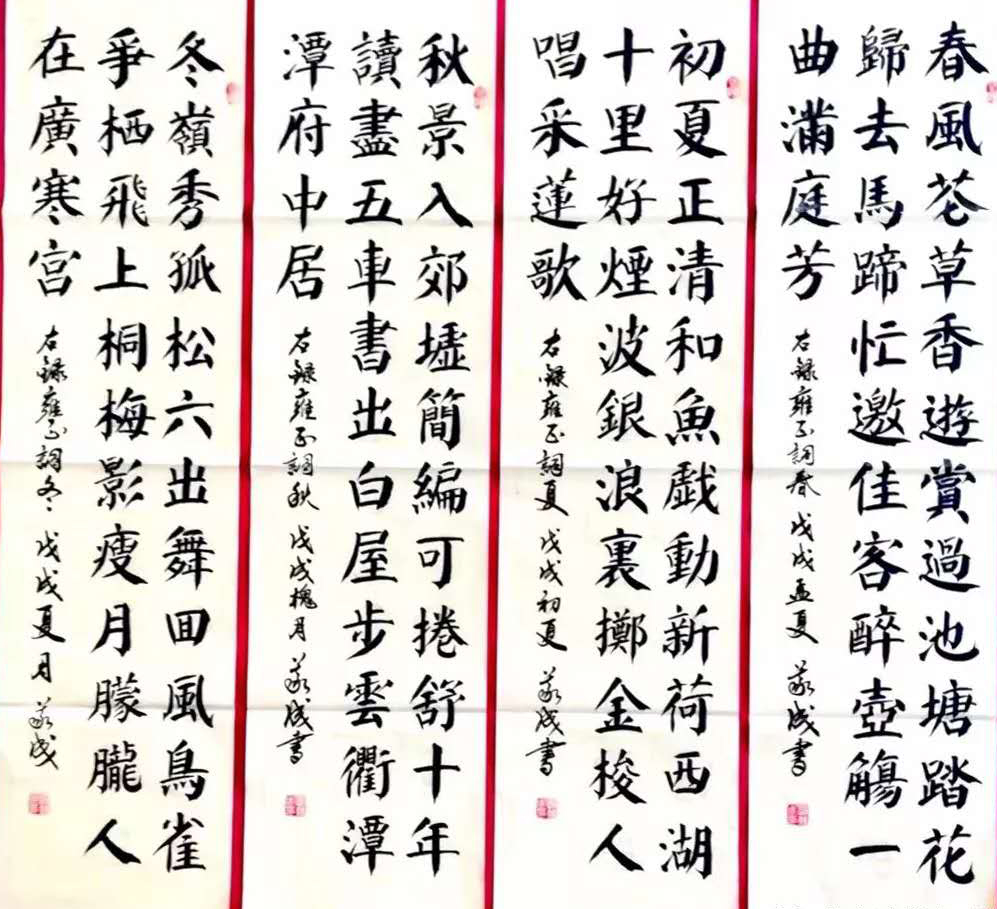 春風花草香遊賞過池塘踏花
歸去馬蹄忙邀佳客醉壺觴一
曲滿庭芳
右錄雍正詞春 戊戌孟夏 義成書
初夏正清和魚戲動新荷西湖
十里好煙波銀浪裏擲金梭人
唱采蓮歌
右錄雍正詞夏 戊戌初夏 義成書
秋景入郊墟簡編可捲舒十年
讀盡五車書出白屋步雲衢潭
潭府中居
右錄雍正詞秋 戊戌槐月 義成書
冬嶺秀孤松六出舞回風鳥雀
爭栖飛上桐梅影瘦月朦朧人
在廣寒宮
右錄雍正詞冬 戊戌夏月 義成